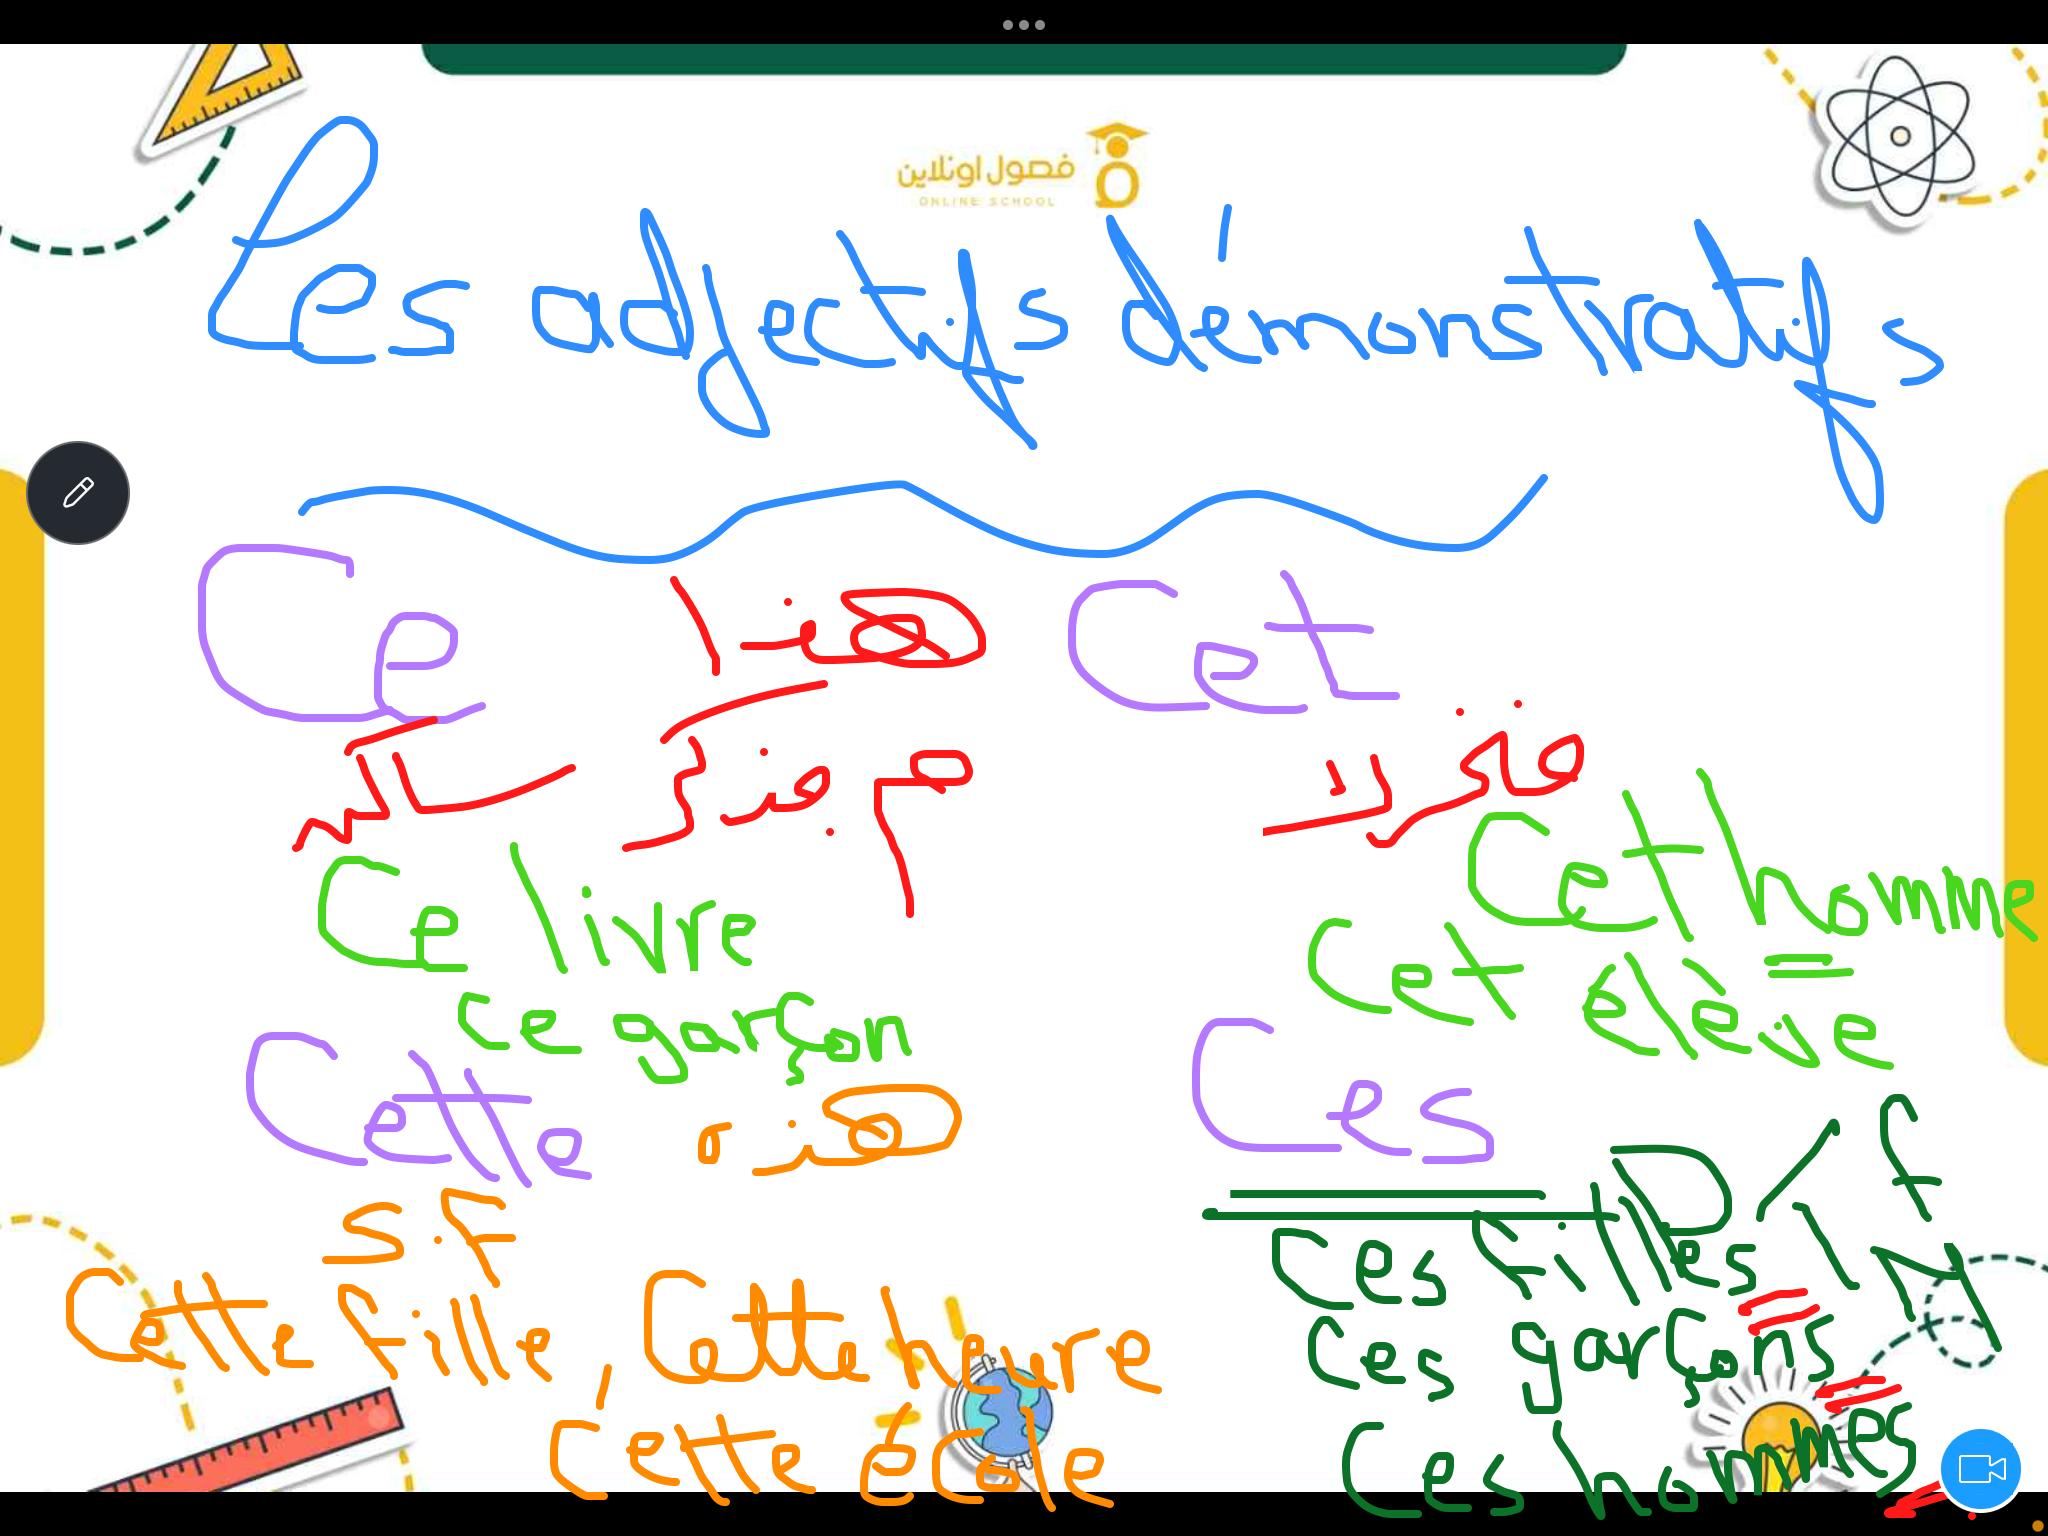 فصول اونلاين
ONLINE SCHOOL
Les adjectifs démonstratifs
Ce هذا
م.مذكر سالم
Ce livre
ce garçon
Cet
Cet homme
Cet élève
Cette هذه
s.f
Cette fille, Cette heure
Cette école
Ces
f
Ces filles
Ces garçons
Ces hommes